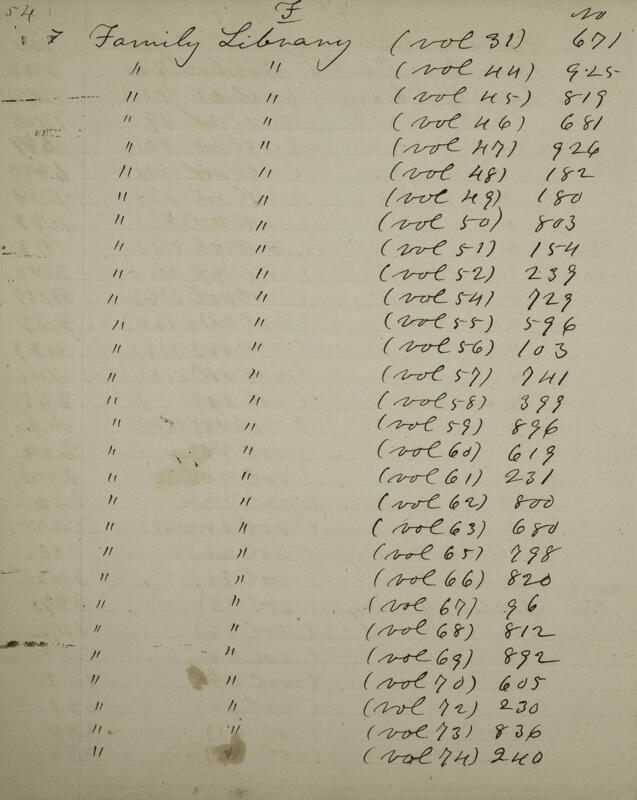 54 F no
" 7 Family Library (vol 31) 671
" " (vol 44) 925
" " (vol 45) 819
" " (vol 46) 681
" " (vol 47) 926
" " (vol 48) 182
" " (vol 49) 180
" " (vol 50) 803
" " (vol 51) 154
" " (vol 52) 239
" " (vol 54) 729
" " (vol 55) 596
" " (vol 56) 103
" " (vol 57) 741
" " (vol 58) 399
" " (vol 59) 896
" " (vol 60) 619
" " (vol 61) 231
" " (vol 62) 800
" " (vol 63) 680
" " (vol 65) 798
" " (vol 66) 820
" " (vol 67) 96
" " (vol 68) 812
" " (vol 69) 892
" " (vol 70) 605
" " (vol 72) 230
" " (vol 73) 836
" " (vol 74) 240